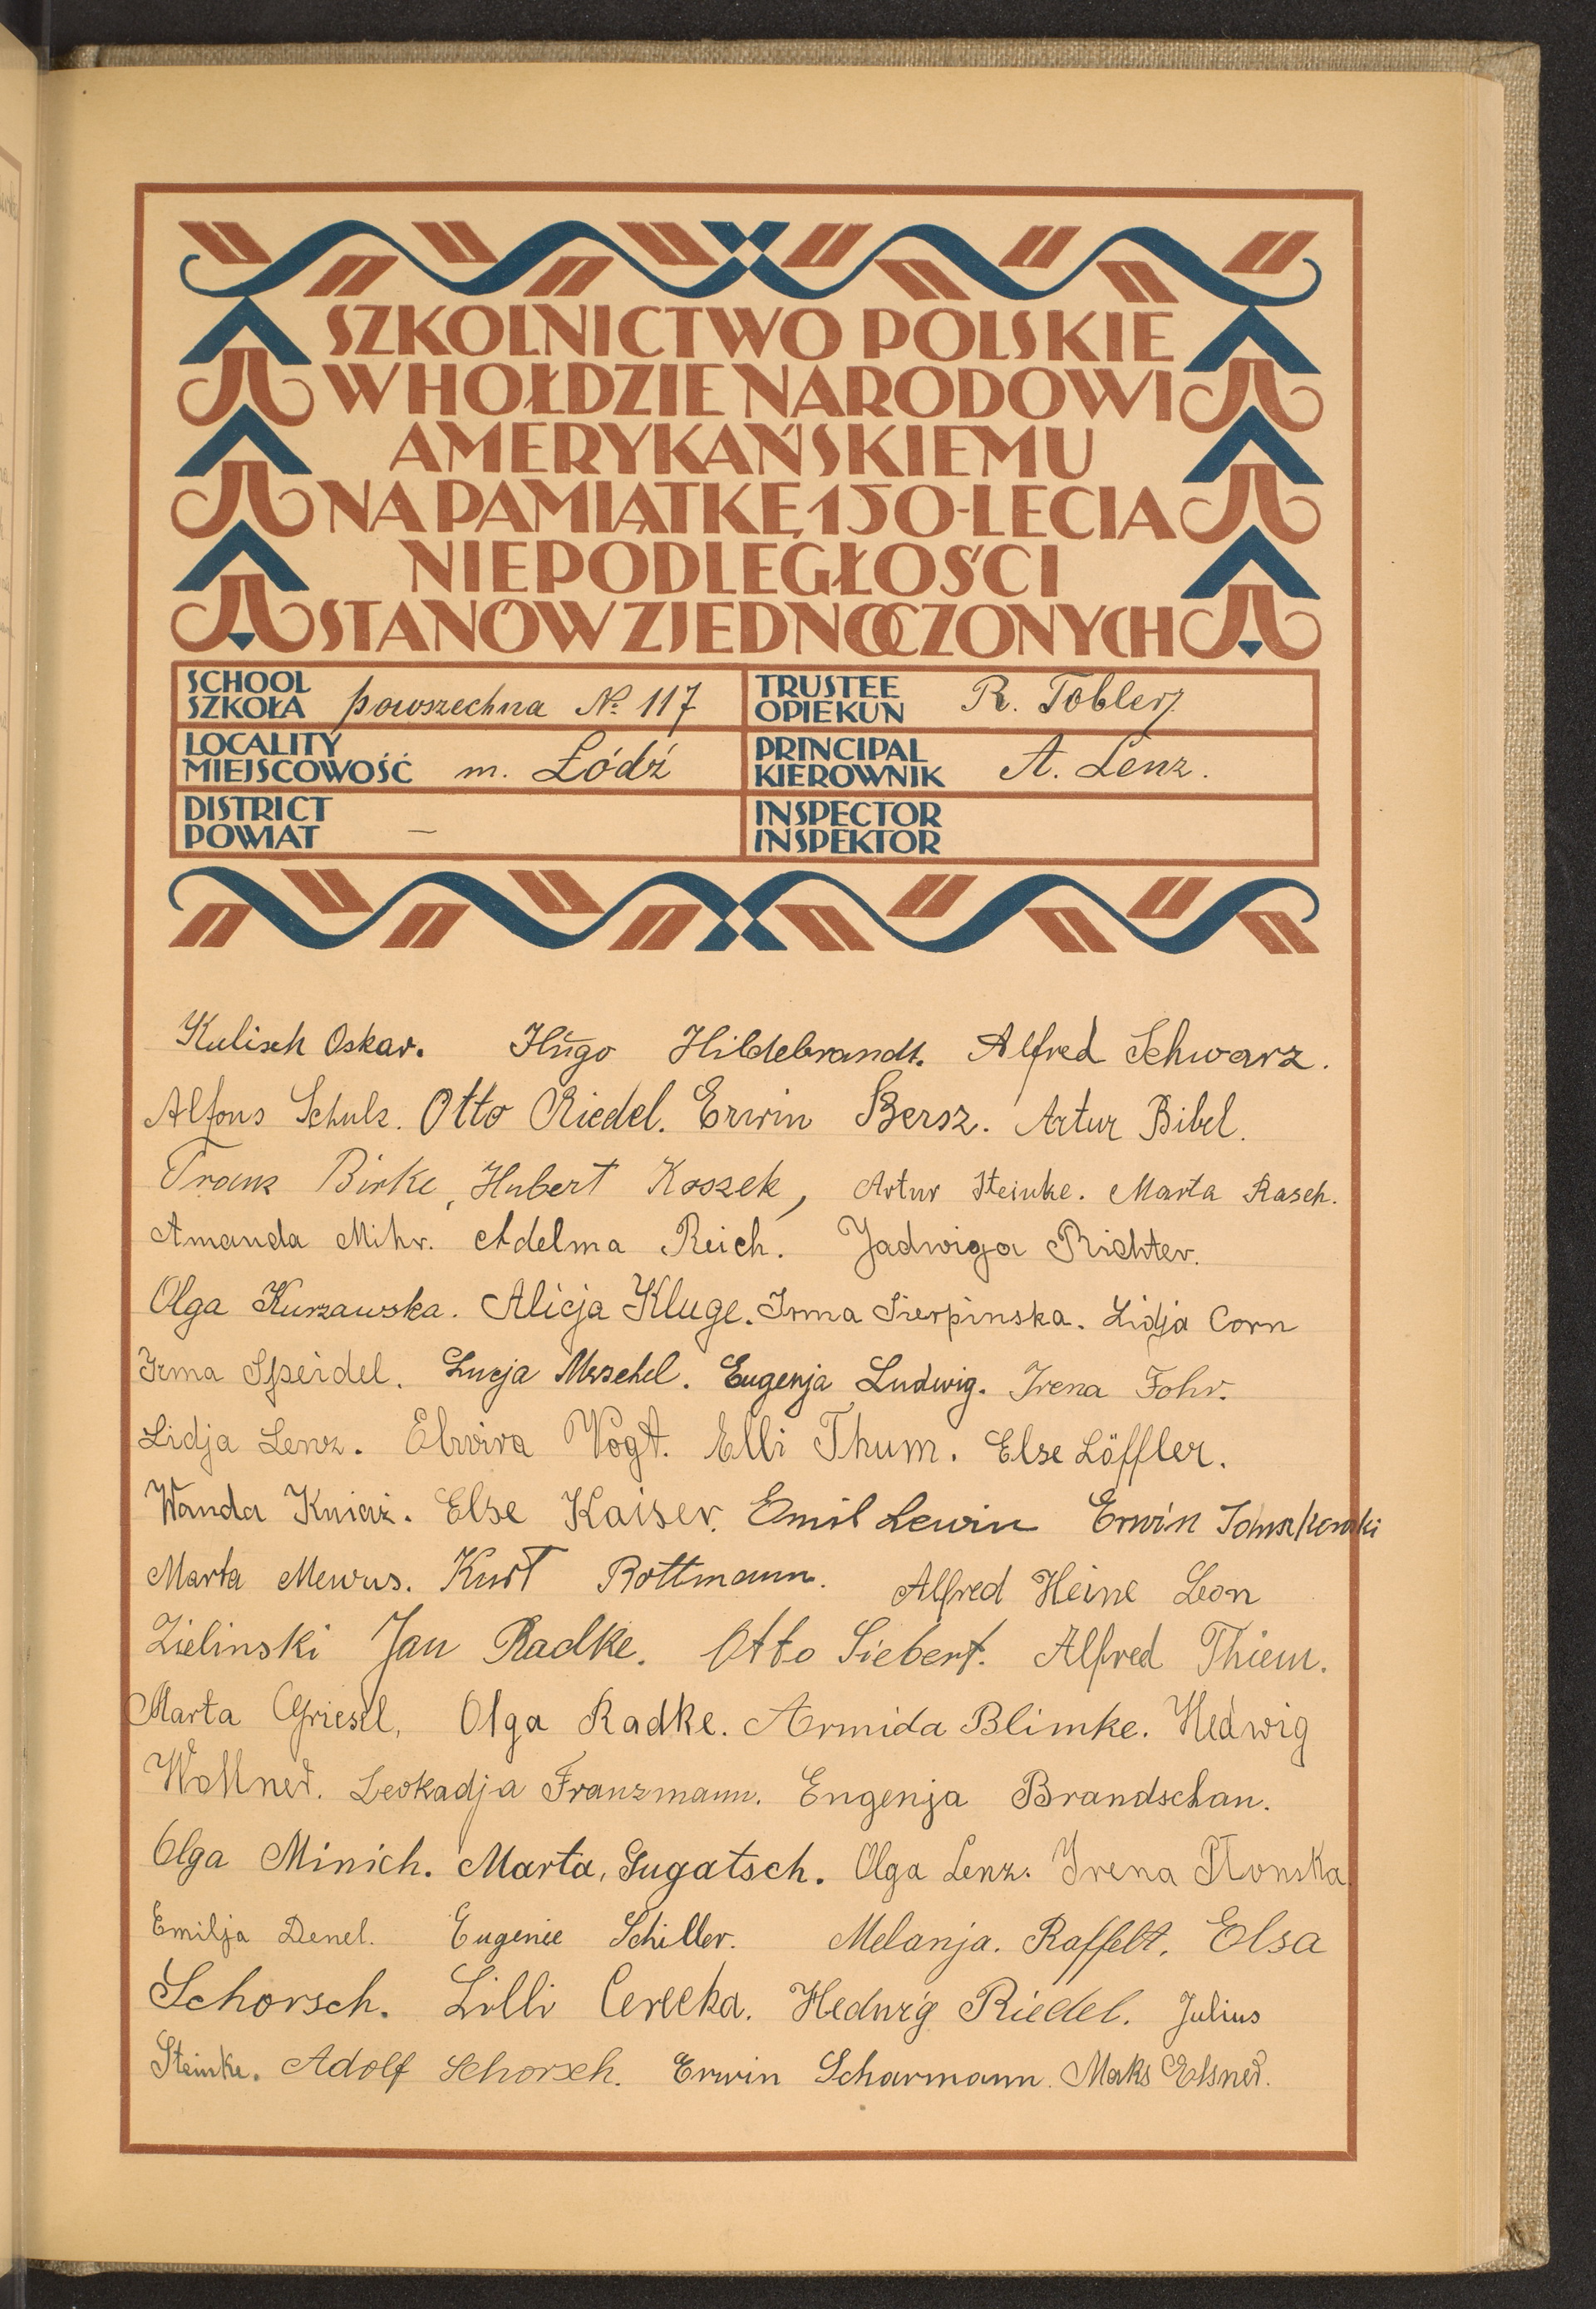 SZKOLNICTWO POLSKIE
W HOŁDZIE NARODOWI
AMERYKAŃSKIEMU
NA PAMIĄTKĘ 150-LECIA
NIEPODLEGŁOŚCI
STANÓW ZJEDNOCZONYCH
SCHOOL
SZKOŁA powszechna No 117
TRUSTEE
OPIEKUN R. Tobler
LOCALITY
MIEJSCOWOŚĆ m. Łódź
PRINCIPAL
KIEROWNIK A. Lenz.
DISTRICT
POWIAT —
INSPECTOR
INSPEKTOR
Kulisch Oskar. Hugo Hildebrandt. Alfred Schwarz.
Alfons Schulz. Otto Riedel. Erwin Bersz. Artur Bibel.
Franz Birke, Hubert Koszek, Artur Steinke. Marta Rasch.
Amanda Mihr. Adelma Reich. Jadwiga Richter.
Olga Kurzawska. Alicja Kluge. Irma Sierpinska. Lidja Corn
Irma Speidel. Lucja Eugenja Ludwig. Irena Fohr.
Lidja Lenz. Elwira Vogt. Elli Thum. Else Löffler.
Wanda Kniaź. Else Kaiser. Emil Lewin Erwin
Marta Mewus. Kurt Rottmann. Alfred Heine Leon
Zielinski Jan Radke. Otto Siebert. Alfred Thiem.
Marta Griesel, Olga Radke. Armida Blimke. Hedwig
Wollner. Leokadja Franzmann. Eugenja Brandschan.
Olga Minich. Marta, Gugatsch. Olga Lenz. Irena Płonska
Emilja Denel. Eugenie Schiller. Melanja. Raffelt. Elsa
Schorsch. Lilli Cerecka. Hedwig Riedel. Julius
Steinke. Adolf Schorsch. Erwin Scharmann. Maks Elsner.